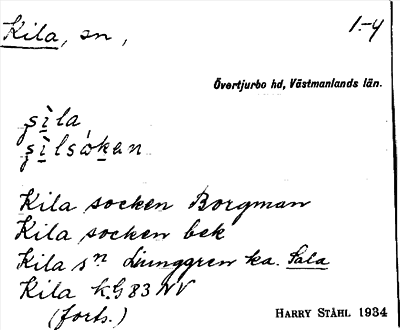 Kila, sn,
1.-4
Övertjurbo hd, Västmanlands län.
şìla
şìlsòkan
Kila socken Borgman
Kila socken bek
Kila sn Ljunggren ka. Sala
Kila k. G 83 NV
(forts.)
HARRY STÅHL 1934